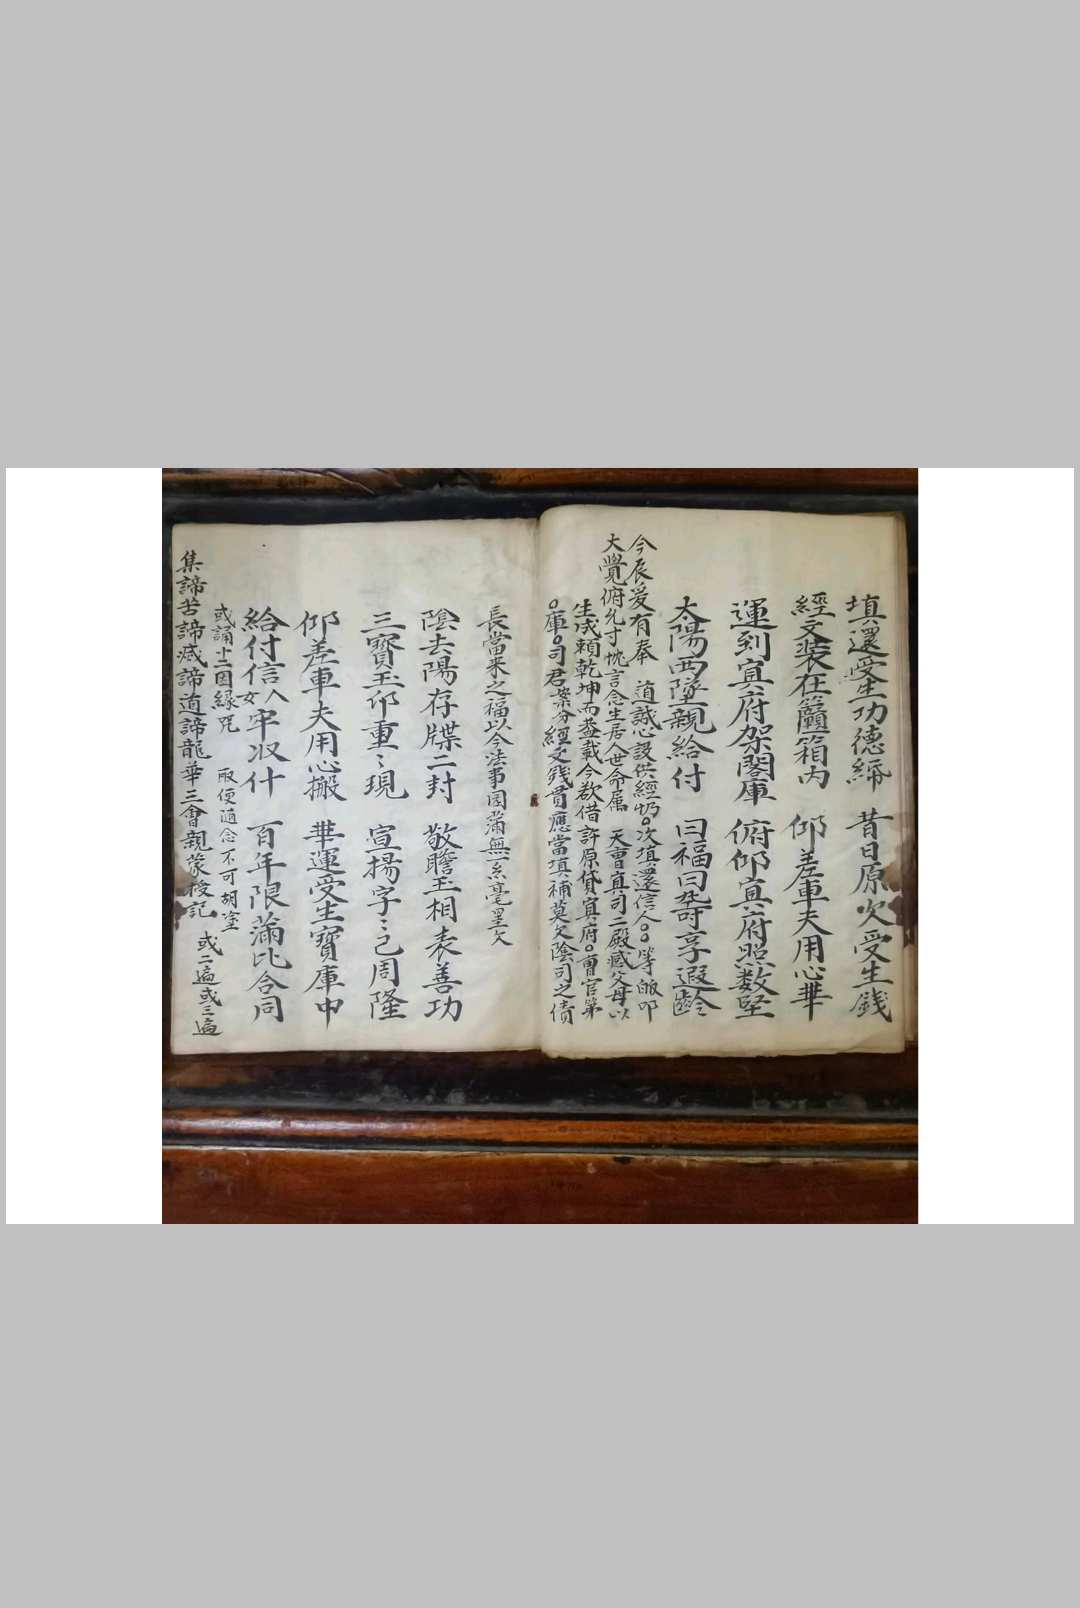 填還受生功德締　昔日原欠受生錢
經文装在籠箱内　仰差車夫用心華
運到冥府架閣庫　俯仰冥府照数堅
太陽西墜親給付　曰福曰壽享遐齡
今辰爰有奉　道誠心設供經帋○次填還信人○○等皈叩
大覺俯允寸忱言念生居人世命属　天曹冥司二殿感父母以
生成頼乾坤而盖載今欲借許原貸冥府○曹官第
○庫○司君案分經文錢貫應當填補莫欠陰司之債
長當来之福以今法事圓滿無一糸毫呈欠
陰去陽存牒二封　敬瞻玉相表善功
三寶玉印重〻現　宣揚字〻已周隆
仰差車夫用心搬　華運受生寶庫中
給付信人女牢収什　百年限滿比合同
或誦十二因縁咒　取便随念不可胡塗
集諦苦諦滅諦道諦龍華三會親蒙授記　或二遍或三遍